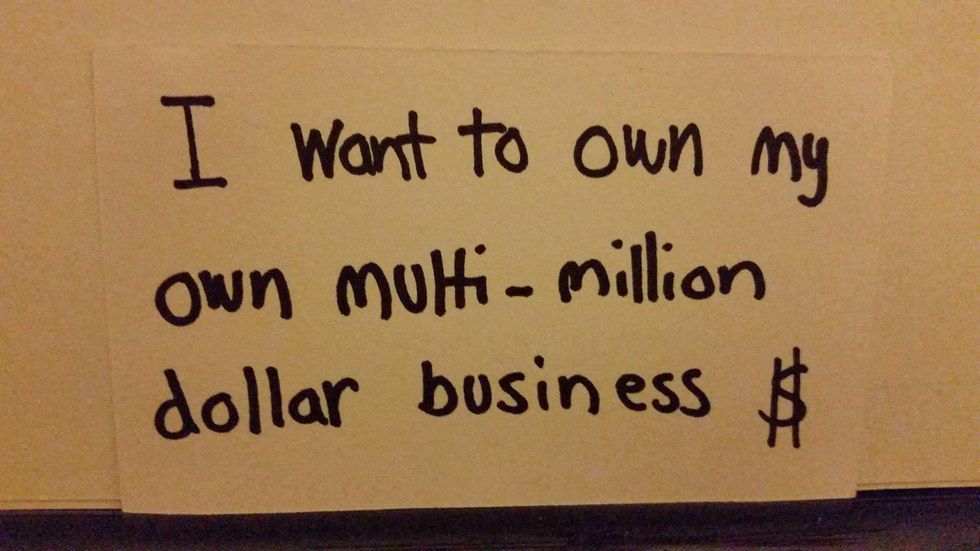 I want to own my
own multi-million
dollar business $